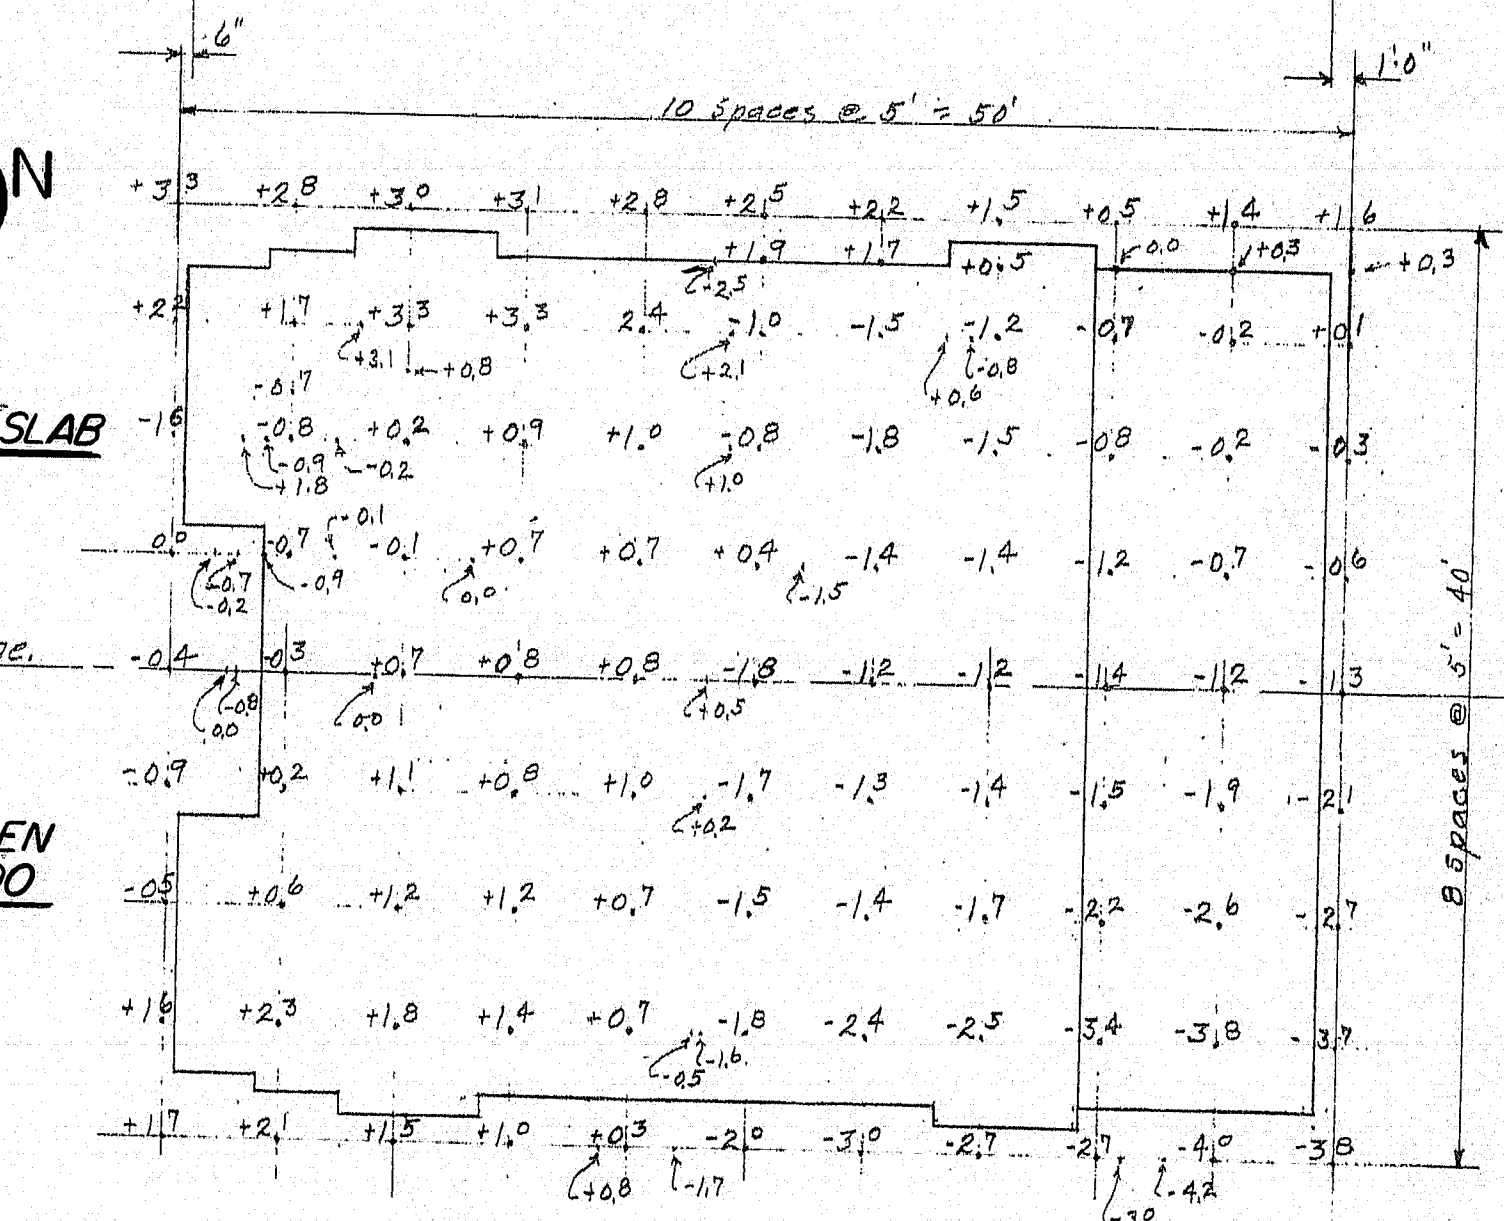 6"
1'0"
10 Spaces @ 5' = 50'
N
+3.3 +2.8 +3.0 +3.1 +2.8 +2.5 +2.2 +1.5 +0.5 +1.4 +1.6
+1.9 +1.7 +0.5 0.0 +0.3 +0.3
+2.5
+2.2 +1.7 +3.3 +3.3 2.4 -1.0 -1.5 -1.2 -0.7 -0.2 +0.1
+3.1 +0.8 +2.1 -0.8
+0.6
-0.7
SLAB
-1.6 -0.8 +0.2 +0.9 +1.0 -0.8 -1.8 -1.5 -0.8 -0.2 -0.3
-0.9 -0.2
+1.8 +1.0
-0.1
0.0 -0.7 -0.1 +0.7 +0.7 +0.4 -1.4 -1.4 -1.2 -0.7 -0.6
-0.7 -0.9 0.0 -1.5
-0.2
-0.4 -0.3 +0.7 +0.8 +0.8 -1.8 -1.2 -1.2 -1.4 -1.2 -1.3
-0.8 0.0 +0.5
0.0
-0.9 +0.2 +1.1 +0.8 +1.0 -1.7 -1.3 -1.4 -1.5 -1.9 -2.1
+0.2
EN
-0.5 +0.6 +1.2 +1.2 +0.7 -1.5 -1.4 -1.7 -2.2 -2.6 -2.7
8 Spaces @ 5' = 40'
+1.6 +2.3 +1.8 +1.4 +0.7 -1.8 -2.4 -2.5 -3.4 -3.8 -3.7
-1.6
-0.5
+1.7 +2.1 +1.5 +1.0 +0.3 -2.0 -3.0 -2.7 -2.7 -4.0 -3.8
+0.8 -1.7 -4.2
-3.0